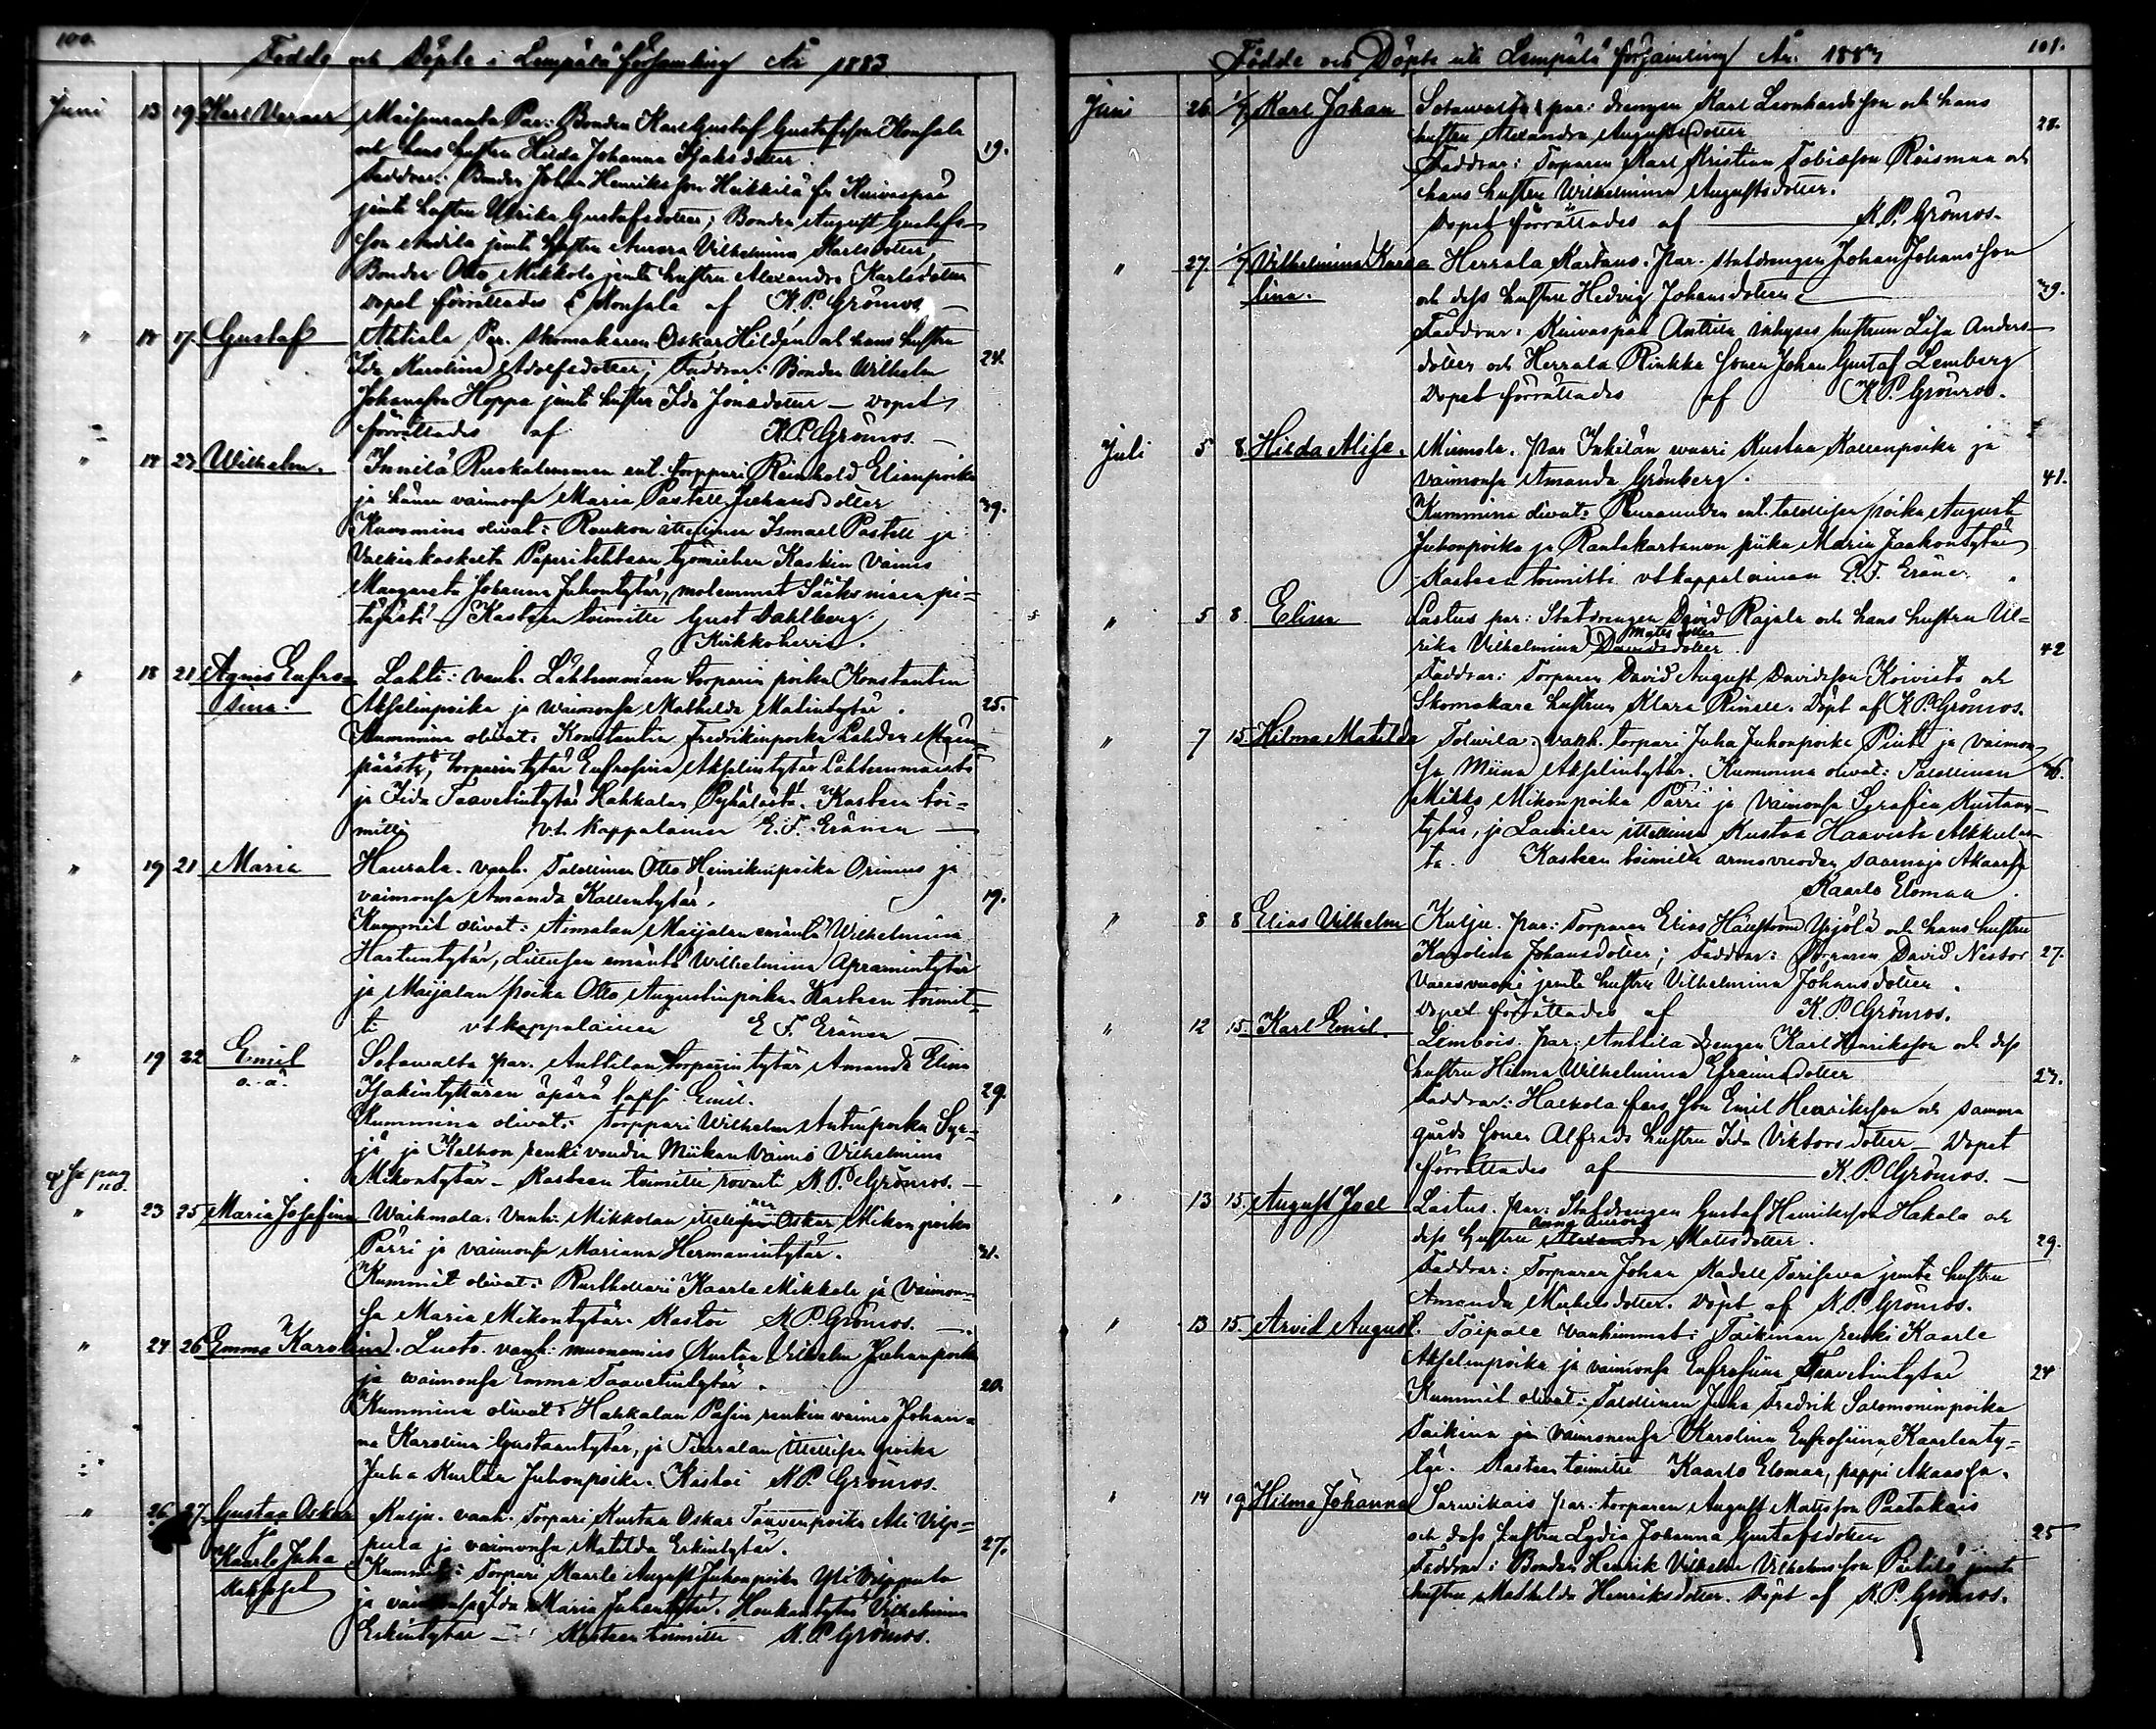 100.
Födde och Döpte i Lempälä församling År 1883
Juni 13 19 Karl Verner Maisenranta Par: Bonden Karl Gustaf Gustafsson Konsala
och hans hustru Hilda Johanna Isaksdotter. 19.
Faddrar: Bonden Johan Henriksson Heikkilä fr Kuivaspää
jemte hustru Ulrika Gustafsdotter; Bonden August Gustafs-
son jemte hustru Aurora Vilhelmina Karlsdotter,
Bonden Otto Mikkola jemte hustru Alexandra Karlsdotter
Dopet förrättades i Konsala af K. P. Grönroos
" 14 17. Gustaf Ahtiala Par. Skomakaren Oskar Hildén och hans hustru
Ida Karolina Adolfsdotter; Faddrar: Bonden Wilhelm 24.
Johansson Hoppa jemte hustru Ida Jonasdotter — Dopet
förrättades af K. P. Grönroos.
" 14 23 Wilhelm. Innilä Ruskalemmen ent. torppari Reinhold Elianpoika
ja hänen vaimonsa Maria Pastell Juhansdotter 39.
Kummina olivat: Roukon itsellinen Ismael Pastell ja
Valkiakoskelta Paperitehtaan työmiehen Kaskin vaimo
Margareta Johanna Juhontytär, molemmat Sääksmäen pi-
täjästä. Kasteen toimitti Gust Dahlberg.
Kirkkoherra.
" 18 21 Agnes Eufro- Lahti: vanh. Lahtenmäen torparin poika Konstantin
sina. Akselinpoika ja vaimonsa Mathilda Matintytär. 25.
Kummina olivat: Konstantin Fredrikinpoika Lahden Mäen-
päästä, torparin tytär Eufrosina Akselintytär Lahtenmäestä
ja Fida Taavetintytär Hakkalan Pyhälöstä. Kasteen toi-
mitti v.t. kappalainen E. F. Eränen
" 19 21 Maria Haurala. vanh. Talollinen Otto Heinrikinpoika Orinius ja
vaimonsa Amanda Kallentytär. 19.
Kummit olivat: Aimalan Maijalan emäntä Wilhelmina
tytär, emäntä Wilhelmina Apramintytär
ja Maijalan poika Otto Augustinpoika. Kasteen toimit-
ti vt kappalainen E. F. Eränen
" 19 22 Emil Sotavalta par. Anttilan torparin tytär Amanda Elina
o. ä. Isakintyttären äpärä lapsi Emil. 29.
Kummina olivat: torppari Wilhelm Antinpoika Syr-
jä ja Kelhon renki vaimo Vilhelmina
Mikontytär — Kasteen toimitti rovasti K. P. Grönroos.
" 23 25 Maria Josefina Waihmala. Vanh: Mikkolan itsellinen Oskar Mikonpoika
Pärri ja vaimonsa Mariana Hermanintytär. 31.
Kummit olivat: Rusthollari Kaarle Mikkola ja vaimon-
sa Maria Mikontytär. Kastoi K. P. Grönroos.
" 24 26 Emma Karolina. Lusto. vanh: muonamies Kustaa Vilhelm Juhanpoika
ja vaimonsa Emma Taavetintytär. 20.
Kummina olivat: Hakkalan Pasin renkin vaimo Johan-
na Karolina Gustaantytär, ja itsellisen poika
Juha Kustaa Juhonpoika. Kastoi K. P. Grönroos.
" 26 27. Gustaa Oskar Kulju. vanh. Torpari Kustaa Oskar Taavenpoika Ali Vilp-
ja pula ja vaimonsa Matilda Erkintytär. 27.
Kaarle Juha Kummit: Torpari Kaarle August Juhonpoika Yli Vilppula
kaksoset ja vaimonsa Ida Maria Juhontytär. Vilhelmina
Erkintytär — Kasteen toimitti K. P. Grönroos.
101.
Födde och Döpte uti Lempälä församling År. 1883
Juni 26. 1/7 Karl Johan Sotavalta par: drengen Karl Leonhardsson och hans
hustru Alexandra Augustsdotter 28.
Faddrar: Torparen Karl Kristian Tobiasson Roismaa och
hans hustru Wilhelmina Augustsdotter.
Dopet förrättades af K. P. Grönroos.
" 27. 1/7 Vilhelmina Karo- Herrala Kartano. Par. statdrengen Johan Johansson
lina. och dess hustru Hedvig Johansdotter 39.
Faddrar: Kuivaspää Anttila inhyses hustrun Lisa Anders-
dotter och Herrala Rinkka sonen Johan Gustaf Lemberg
Dopet förrättades af K. P. Grönroos.
Juli 5 8 Hilda Alise. par Inkilän Kustaa Kallenpoika ja
vaimonsa Amanda Grönberg. 41.
Kummina olivat: ent. talollisen poika August
Juhonpoika ja Rantakartanon piika Maria Jaakontytär
Kasteen toimitti vt kappalainen E. F. Eränen.
" 5 8 Elina Lastus par: Statdrengen David Rajala och hans hustru Ul-
rika Vilhelmina Davidsdotter Matsdotter. 42
Faddrar: Torparen David August Davidsson Koivisto och
Skomakare hustrun Klara Rinell. Döpt af K. P. Grönroos.
" 7 15 Hilma Matilda vanh. torpari Juha Juhonpoika Pintt ja vaimon-
sa Miina Akselintytär. Kummina olivat: Talollinen 46.
Mikko Mikonpoika Pärri ja vaimonsa Serafia Kustaan-
tytär, ja itsellinen Kustaa Haavisto Alkkulas-
ta. Kasteen toimitti armovuoden saarnaja Akaassa
Kaarlo Elomaa.
" 8 8 Elias Vilhelm Kulju. par: Torparen Elias Häggström Yrjölä och hans hustru
Karolina Johansdotter; Faddrar: Torparen David Nestor 27.
Varesvuori jemte hustru Vilhelmina Johansdotter.
Dopet förrättades af K. P. Grönroos.
" 12 15. Karl Emil. Lembois. par: Anttila drengen Karl Henriksson och dess
hustru Hilma Wilhelmina Efraimsdotter 23.
Faddrar: Halkola fars son Emil Henriksson och samma
gårds sonen Alfreds hustru Ida Viktorsdotter — Dopet
förrättades af K. P. Grönroos.
" 13 15. August Joel Lastus. par: Statdrengen Gustaf Henriksson Hakala och
dess hustru Alexandra Anna Aurora Matsdotter. 29.
Faddrar: Torparen Johan Kadell jemte hustru
Amanda Mickelsdotter. Döpt af K. P. Grönroos.
" 13 15. Arvid August. Taipale Vanhimmat: Taikinan renki Kaarle
Akselinpoika ja vaimonsa Eufrosina Taavetintytär 24
Kummit olivat: Talollinen Juha Fredrik Salomoninpoika
Taikina ja vaimonensa Karolina Eufrosiina Kaarlenty-
tär. Kasteen toimitti Kaarlo Elomaa, pappi Akaassa.
" 14 19 Hilma Johanna Sarvikais par: torparen August Matsson Paatakais
och dess hustru Lydia Johanna Gustafsdotter 25
Faddrar: Bonden Henrik Vilhelm Vilhelmsson jemte
hustru Mathilda Henriksdotter. Döpt af K. P. Grönroos.